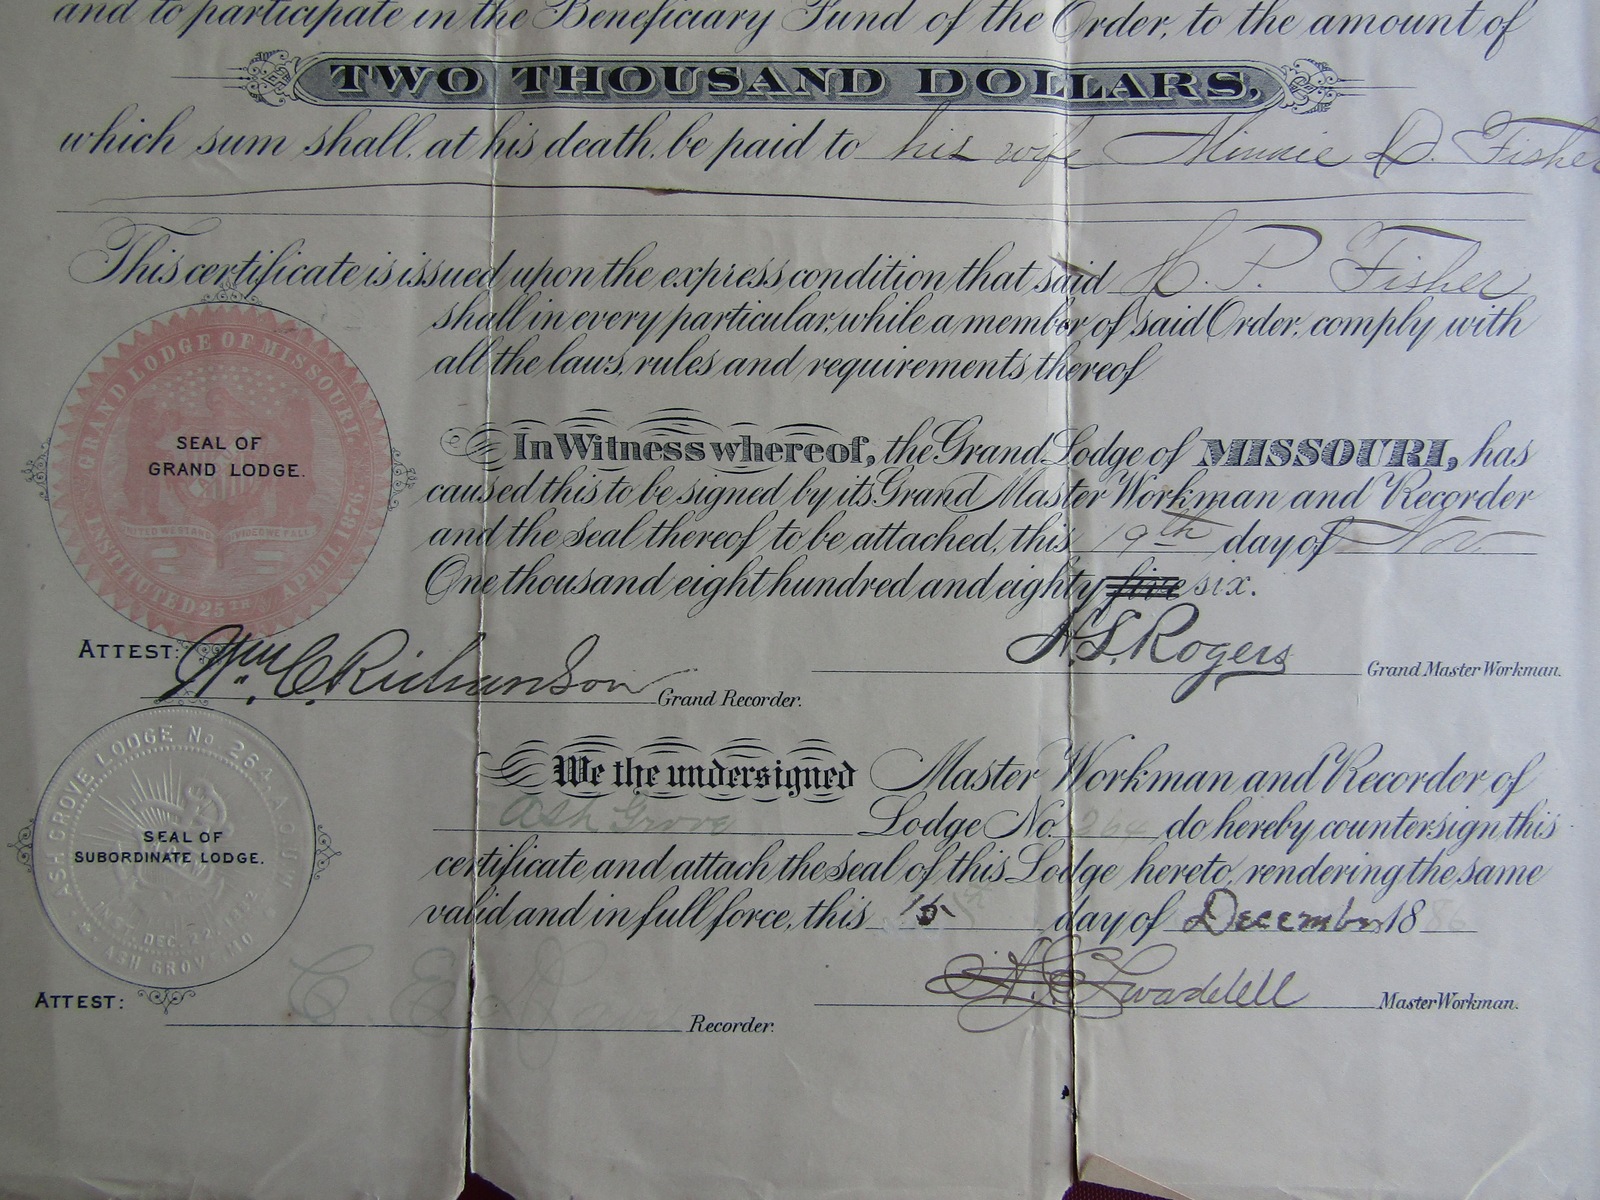 and to participate in the Beneficiary Fund of the Order, to the amount of
TWO THOUSAND DOLLARS,
which sum shall, at his death, be paid to his wife Minnie D. Fisher
This certificate is issued upon the express condition that said H. P. Fisher
shall in every particular, while a member of said Order, comply with
all the laws, rules and requirements thereof
GRAND LODGE OF MISSOURI.
INSTITUTED 25TH APRIL 1876.
UNITED WE STAND DIVIDED WE FALL
SEAL OF
GRAND LODGE.
In Witness whereof, the Grand Lodge of MISSOURI, has
caused this to be signed by its Grand Master Workman and Recorder
and the seal thereof to be attached, this 19th day of Nov
One thousand eight hundred and eighty five six.
ATTEST: Wm. C. Richardson Grand Recorder.
H. L. Rogers Grand Master Workman.
ASH GROVE LODGE No 264. A.O.U.W
INST. DEC. 22,
ASH GROVE MO
SEAL OF
SUBORDINATE LODGE.
We the undersigned Master Workman and Recorder of
Ash Grove Lodge No. 264 do hereby countersign this
certificate and attach the seal of this Lodge hereto, rendering the same
valid and in full force, this 15 day of December 1886
Swaddell Master Workman.
ATTEST: C. E. Recorder.